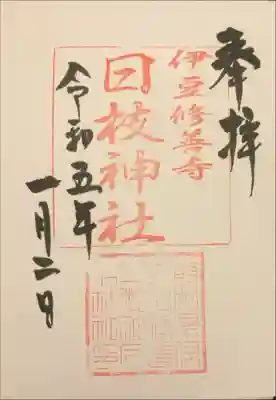 奉拝
伊豆修善寺
日枝神社
令和五年
一月二日